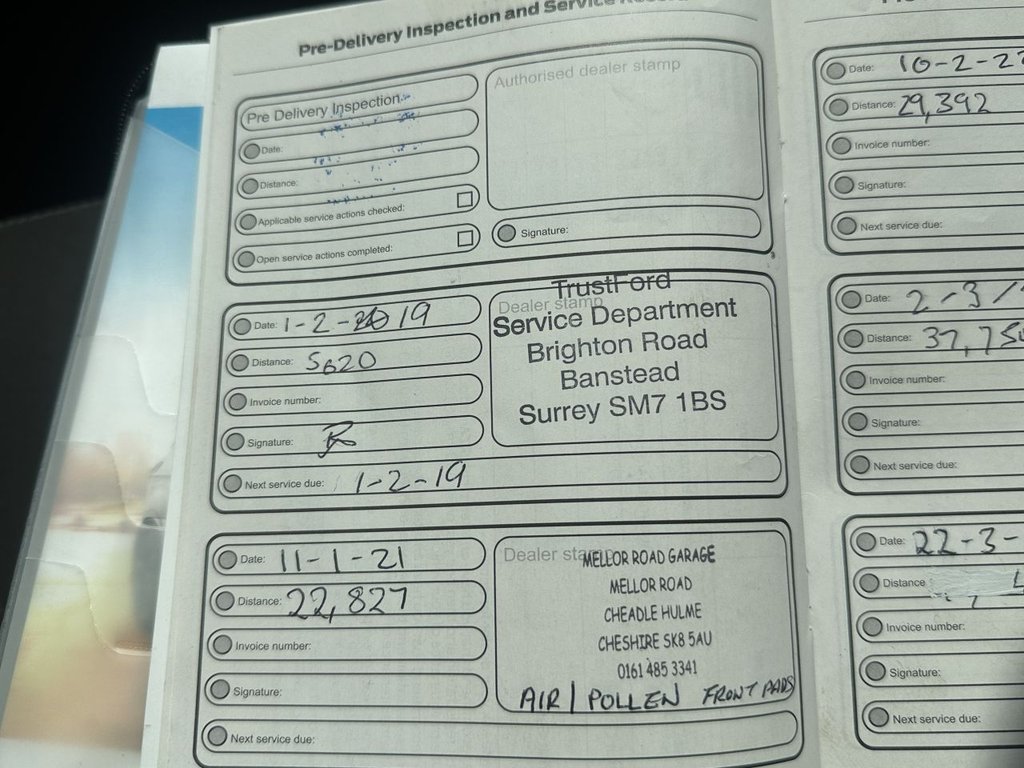 Pre-Delivery Inspection and Service
Pre Delivery Inspection
Date:
Distance:
Applicable service actions checked:
Open service actions completed:
Authorised dealer stamp
Signature:
Date: 1-2-19
Distance: 5620
Invoice number:
Signature:
Next service due: 1-2-19
Dealer stamp
TrustFord
Service Department
Brighton Road
Banstead
Surrey SM7 1BS
Date: 11-1-21
Distance: 22,827
Invoice number:
Signature:
Next service due:
Dealer stamp
MELLOR ROAD GARAGE
MELLOR ROAD
CHEADLE HULME
CHESHIRE SK8 5AU
0161 485 3341
AIR / POLLEN FRONT PADS
Date: 10-2-2
Distance: 29,392
Invoice number:
Signature:
Next service due:
Date: 2-3/
Distance: 37,75
Invoice number:
Signature:
Next service due:
Date: 22-3-
Distance
Invoice number:
Signature:
Next service due: